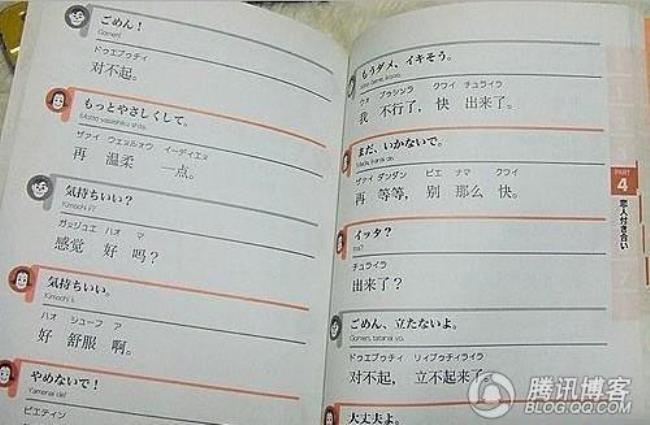 ごめん！
Gomen!
ドゥエブゥチィ
对不起。
もっとやさしくして。
Motto yasashiku shite.
ザァイ ウェヌルォウ イーディエヌ
再 温柔 一点。
気持ちいい？
Kimochi ii?
ガヌジュエ ハオ マ
感觉 好 吗？
気持ちいい。
Kimochi ii.
ハオ シューフ ア
好 舒服 啊。
やめないで！
Yamenai de!
ビエティン
もうダメ、イキそう。
ウォ ブゥシンラ クワイ チュライラ
我 不行了， 快 出来了。
まだ、いかないで。
Mada, ikanai de.
ザァイ ダンダン ビエ ナマ クワイ
再 等等， 别 那么 快。
イッタ？
チュライラ
出来了？
ごめん、立たないよ。
Gomen, tatanai yo.
ドゥエブゥチィ リィブゥチィライラ
对不起， 立不起来了。
大丈夫よ。
PART
4
恋人付き合い
腾讯博客
BLOG.QQ.COM